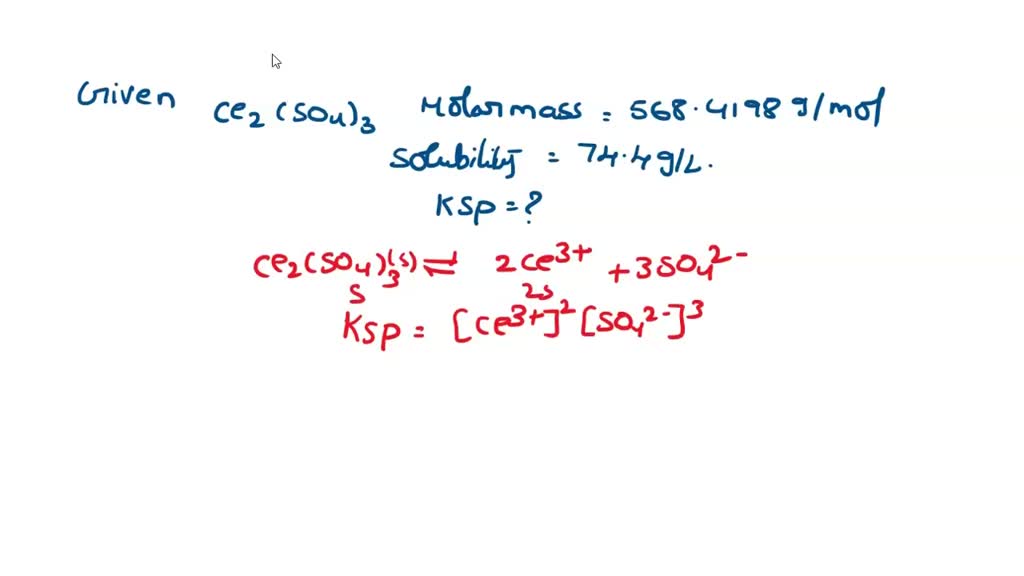 Given Ce₂(SO₄)₃ Molar mass = 568.4198 g/mol
Solubility = 74.4 g/L.
Ksp = ?
Ce₂(SO₄)₃(s) ⇌ 2Ce³⁺ + 3SO₄²⁻
S 2S
Ksp = [Ce³⁺]² [SO₄²⁻]³